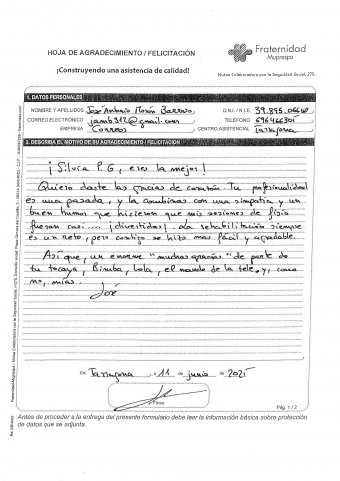 HOJA DE AGRADECIMIENTO / FELICITACIÓN
¡Construyendo una asistencia de calidad!
Fraternidad
Muprespa
Mutua Colaboradora con la Seguridad Social, 275.
1. DATOS PERSONALES
NOMBRE Y APELLIDOS José Antonio Morón Barroso
D.N.I. / N.I.E.
CORREO ELECTRÓNICO jamb312@gmail.com
TELÉFONO 696466305
EMPRESA Correos
CENTRO ASISTENCIAL Tarragona
2. DESCRIBA EL MOTIVO DE SU AGRADECIMIENTO / FELICITACIÓN
¡Silvia P.G, eres la mejor!
Quiero darte las gracias de corazón. Tu profesionalidad
es una pasada, y la combinas con una simpatía y un
buen humor que hicieron que mis sesiones de fisio
fueran casi... ¡divertidas! La rehabilitación siempre
es un reto, pero contigo se hizo mas fácil y agradable.
Así que, un enorme "muchas gracias" de parte de
tu tocaya, Bimba, Lola, el mando de la tele, y, como
no, mías.
José
En Tarragona, 11 de junio de 2025
Firma
Pág. 1 / 2
Antes de proceder a la entrega del presente formulario debe leer la información básica sobre protección
de datos que se adjunta.